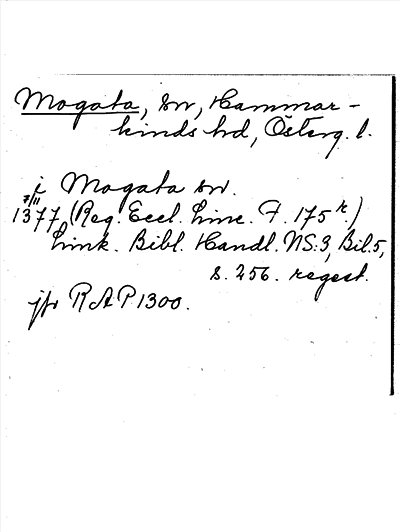 Mogata, sn, Hammar-
kinds hd, Österg. l.
i Mogata sn.
7/11
1377 (Reg. Eccl. Linc. F. 175 r.)
Link. Bibl. Handl. NS:3, Bil. 5,
s. 256. regest.
jfr RAP 1300.